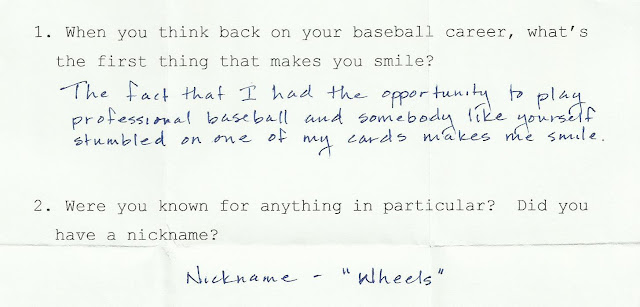 1. When you think back on your baseball career, what's
the first thing that makes you smile?
The fact that I had the opportunity to play
professional baseball and somebody like yourself
stumbled on one of my cards makes me smile.
2. Were you known for anything in particular? Did you
have a nickname?
Nickname - "Wheels"